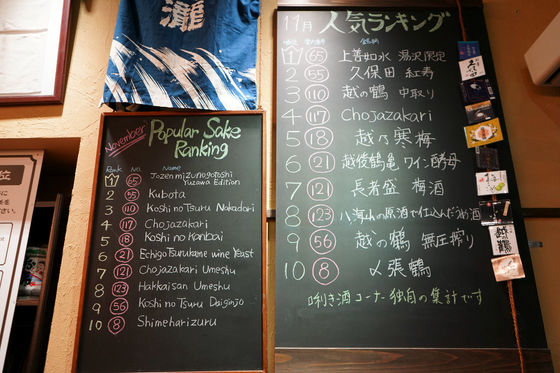 瀧
November
Popular Sake
Ranking
Rank No. Name
1 65 Jozen mizunogotoshi
Yuzawa Edition
2 55 Kubota
3 110 Koshi no Tsuru Nakadori
4 117 Chojazakari
5 18 Koshi no Kanbai
6 21 Echigo Tsurukame wine Yeast
7 121 Chojazakari Umeshu
8 123 Hakkaisan Umeshu
9 56 Koshi no Tsuru Daiginjo
10 8 Shimeharizuru
11月 人気ランキング
1 65 上善如水 湯沢限定
2 55 久保田 紅寿
3 110 越の鶴 中取り
4 117 Chojazakari
5 18 越乃寒梅
6 21 越後鶴亀 ワイン酵母
7 121 長者盛 梅酒
8 123 八海山の原酒で仕込んだうめ酒
9 56 越の鶴 無圧搾り
10 8 〆張鶴
唎き酒コーナー独自の集計です
位